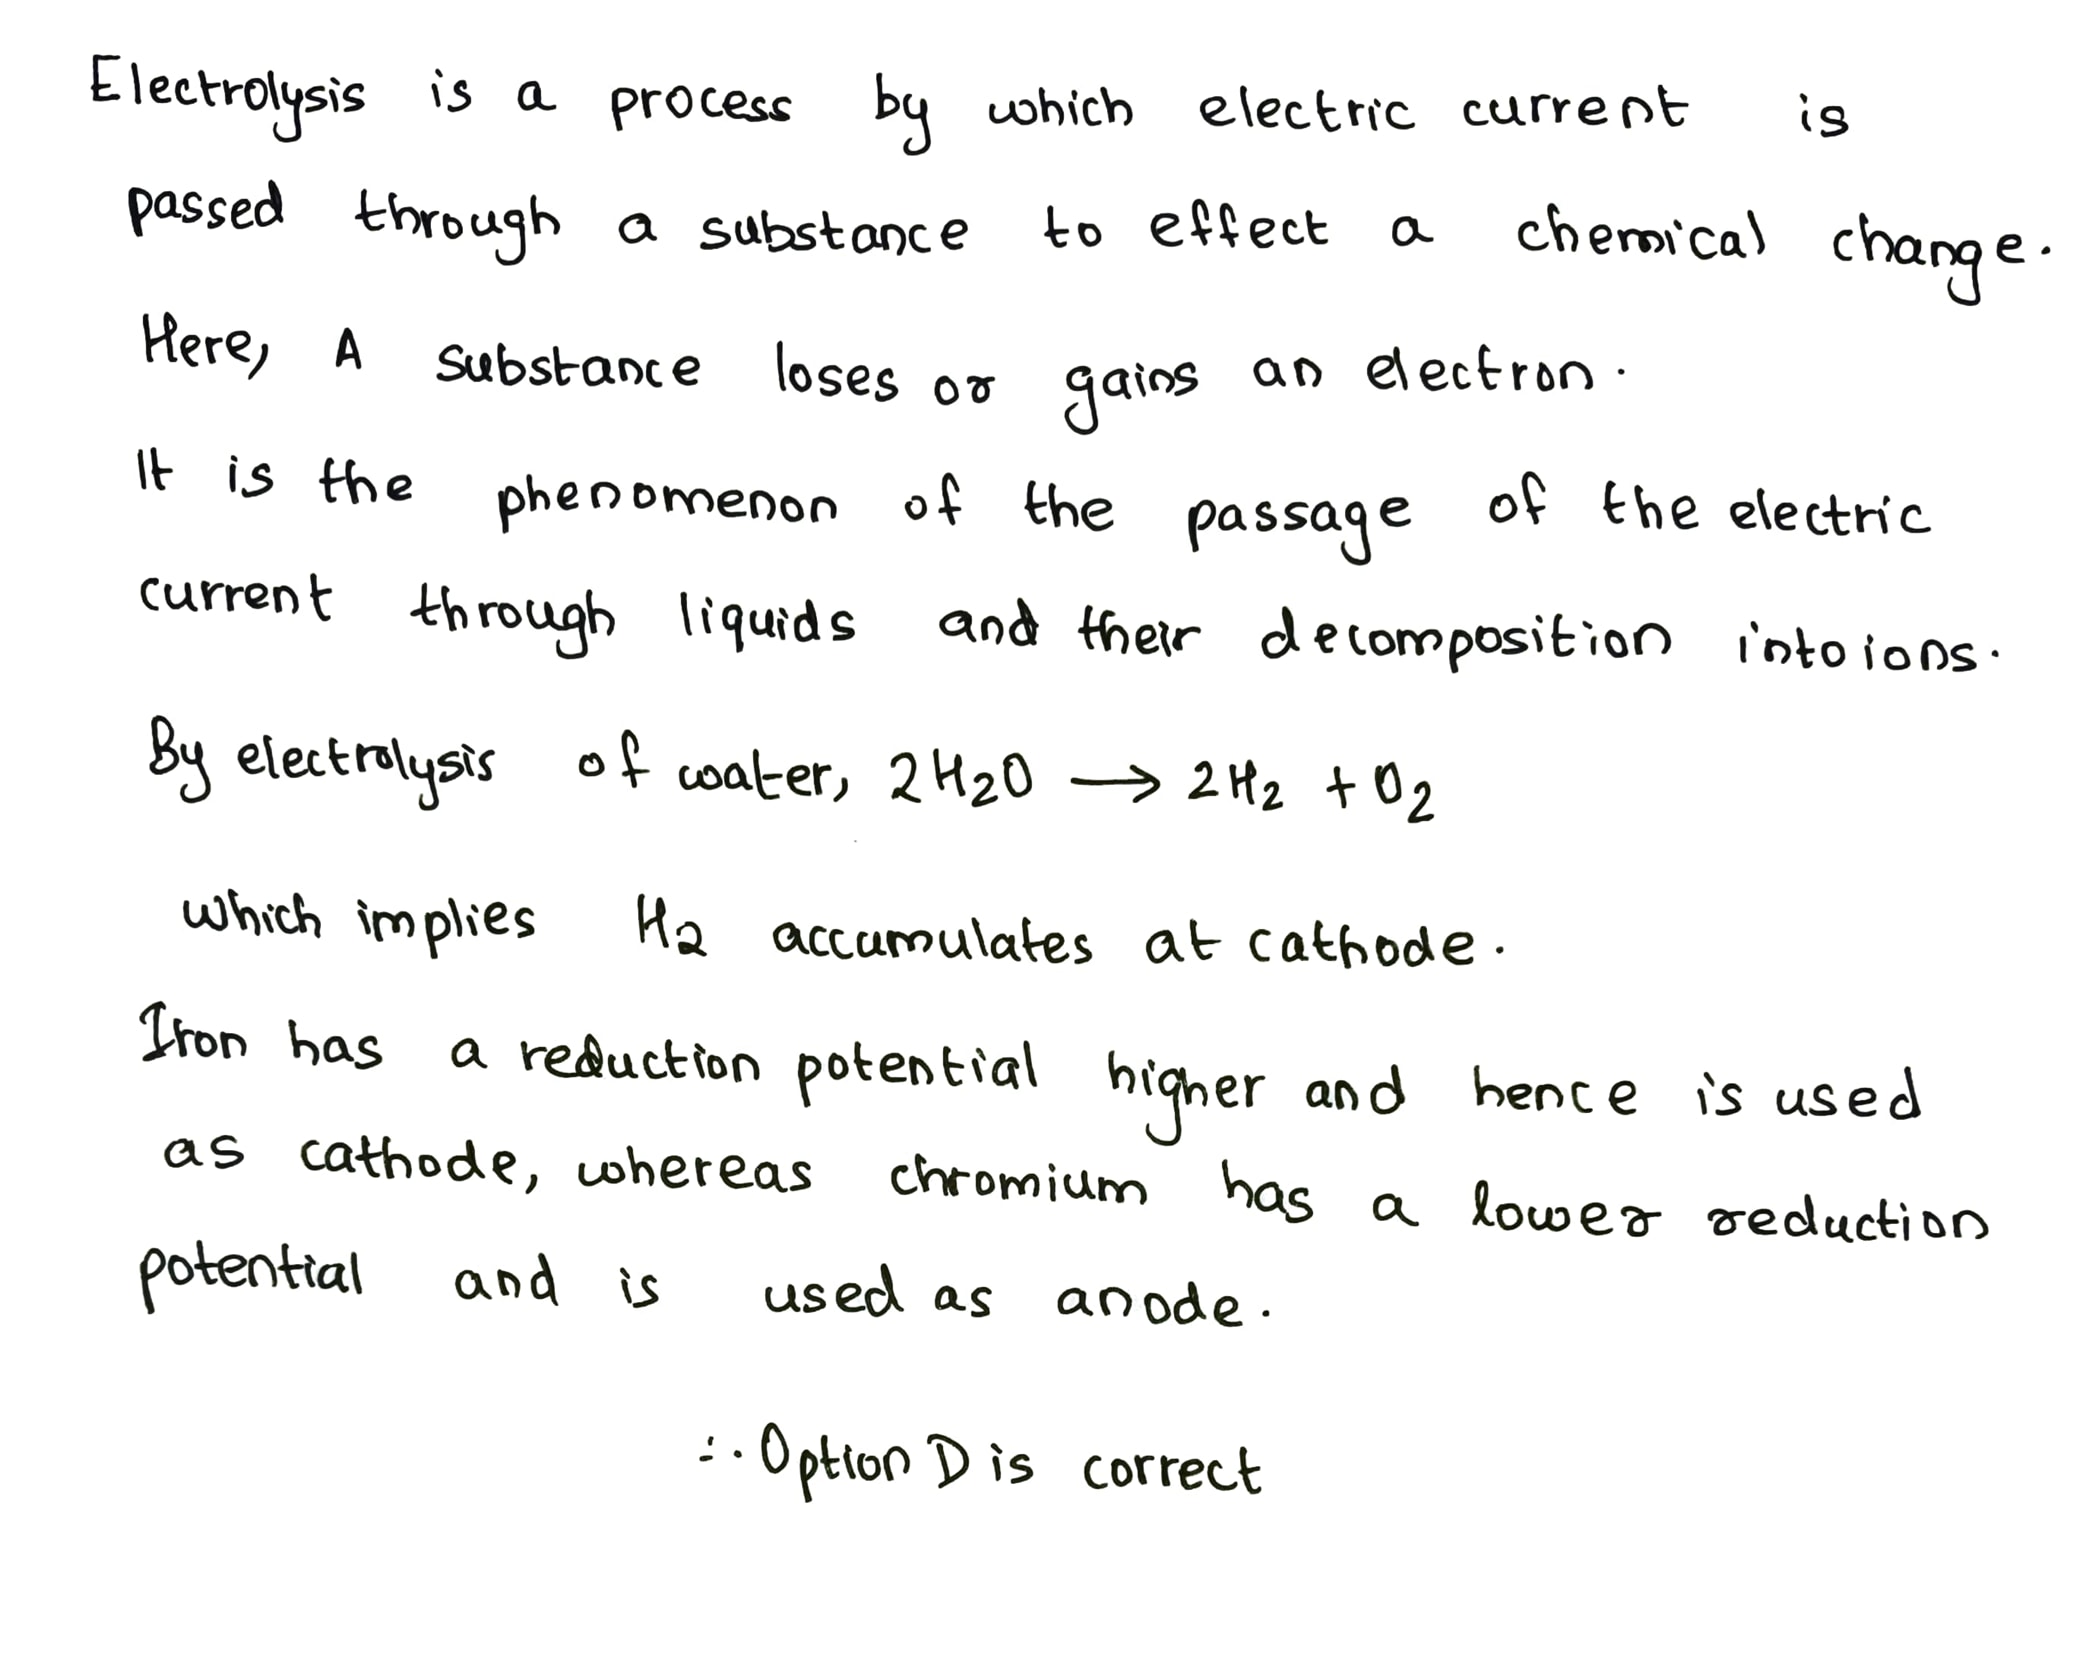 Electrolysis is a process by which electric current is
passed through a substance to effect a chemical change.
Here, A substance loses or gains an electron.
It is the phenomenon of the passage of the electric
current through liquids and their decomposition into ions.
By electrolysis of water, 2H2O → 2H2 + O2
which implies H2 accumulates at cathode.
Iron has a reduction potential higher and hence is used
as cathode, whereas chromium has a lower reduction
potential and is used as anode.
∴ Option D is correct